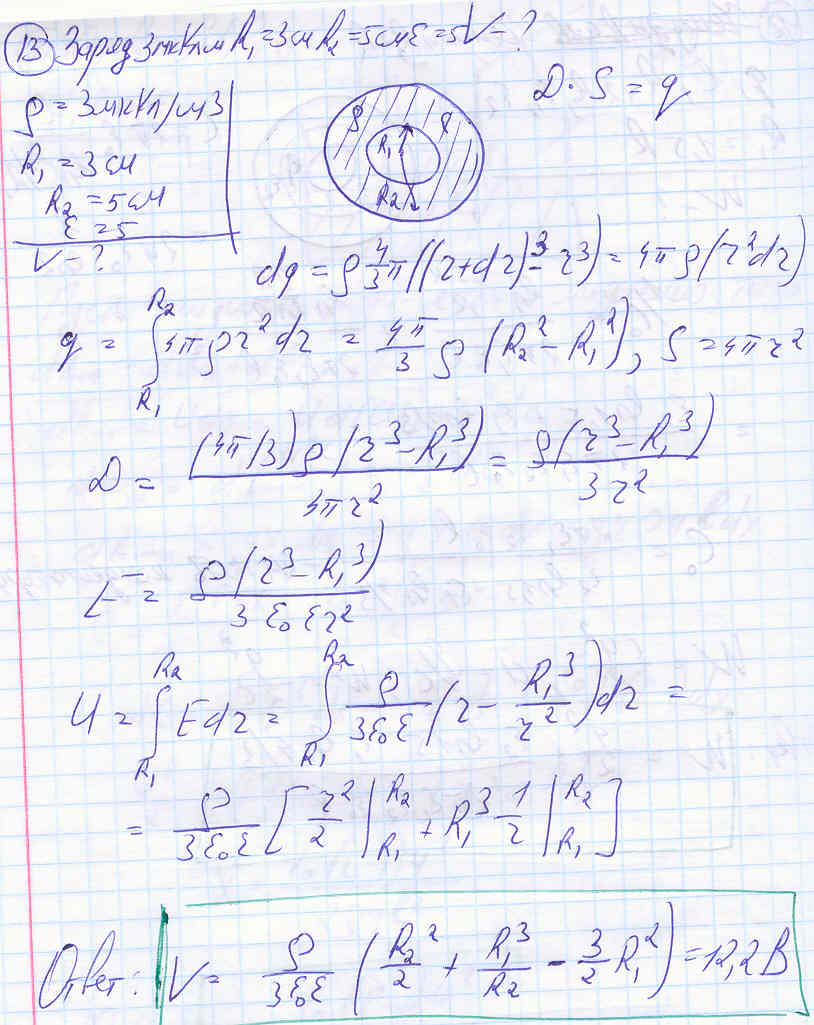 13 Заряд 3мкКл/м R₁=3см R₂=5см ε=5 V-?
ρ = 3мкКл/м3
D·S = q
R₁ = 3 см
R₂ = 5 см
ε = 5
V-?
ρ ρ R₁ R₂
dq = ρ 4/3 π((r+dr)³ - r³) = 4π ρ(r²dr)
q = ∫_{R₁}^{R₂} 4πρr²dr = 4π/3 ρ (R₂² - R₁²), S = 4πr²
D = (4π/3)ρ(r³-R₁³) / 4πr² = ρ(r³-R₁³) / 3r²
E = ρ(r³-R₁³) / 3ε₀εr²
U = ∫_{R₁}^{R₂} Edr = ∫_{R₁}^{R₂} ρ/3ε₀ε (r - R₁³/r²)dr =
= ρ/3ε₀ε [r²/2 |_{R₁}^{R₂} + R₁³ 1/r |_{R₁}^{R₂}]
Ответ: V = ρ/3ε₀ε (R₂²/2 + R₁³/R₂ - 3/2 R₁²) = 12,2В